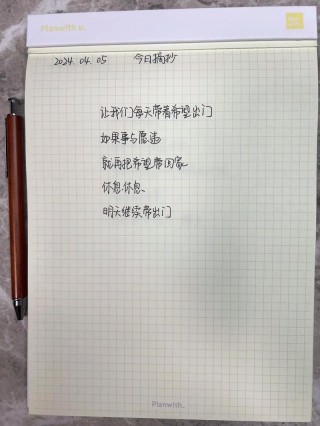 Planwith u.
2024.04.05 今日摘抄
让我们每天带着希望出门
如果事与愿违
就再把希望带回家
休息休息、
明天继续带出门
Planwith.